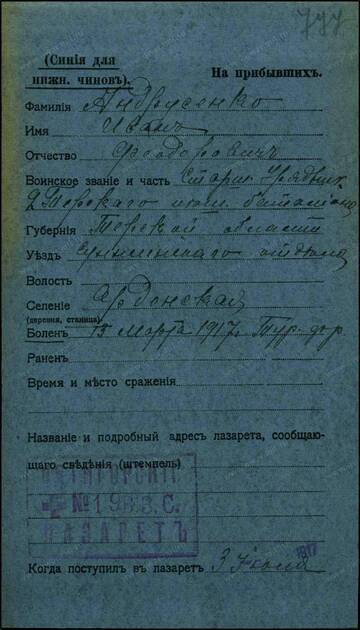 777
(Синія для
нижн. чиновъ).
На прибывшихъ.
Фамилія Андрусенко
Имя Иванъ
Отчество Феодоровичъ
Воинское званіе и часть Старш. Урядник
2 Терскаго батальона
Губернія Терской области
Уѣздъ Сунженскаго отдѣла
Волость
Селеніе Ардонская
(деревня, станица)
Боленъ 15 марта 1917г. Тур. фр.
Раненъ
Время и мѣсто сраженія
Названіе и подробный адресъ лазарета, сообщаю-
щаго свѣдѣнія (штемпель)
ПЯТИГОРСКІЙ
№ 19 В.З.С.
ЛАЗАРЕТЪ
Когда поступилъ въ лазаретъ 3 Іюня 1917